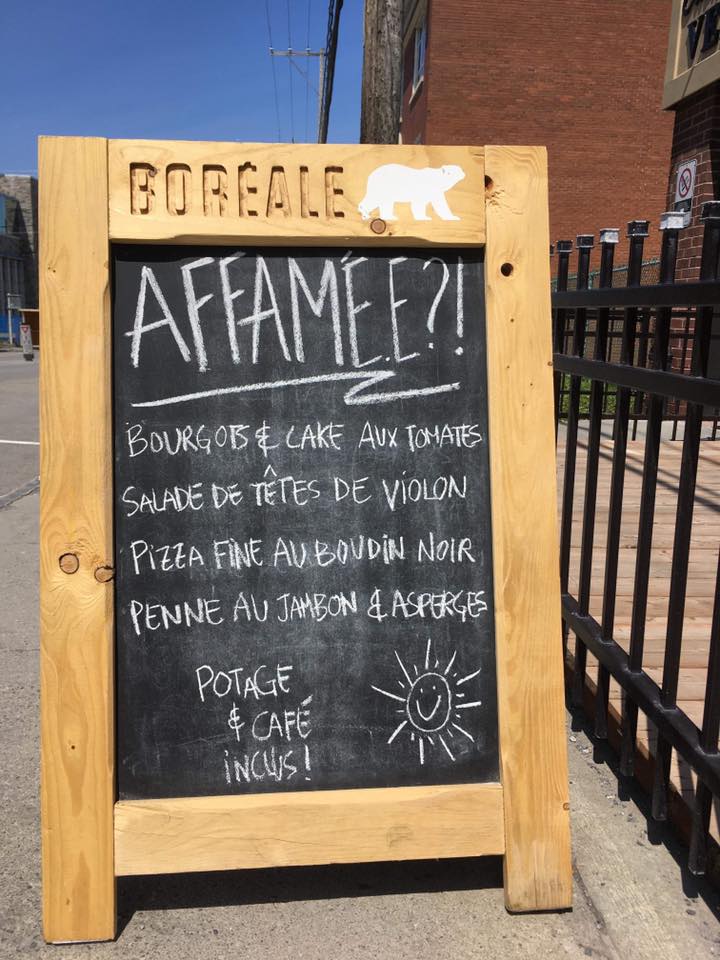 BORÉALE
AFFAMÉ.E?!
BOURGOTS & CAKE AUX TOMATES
SALADE DE TÊTES DE VIOLON
PIZZA FINE AU BOUDIN NOIR
PENNE AU JAMBON & ASPERGES
POTAGE
& CAFÉ
INCLUS!